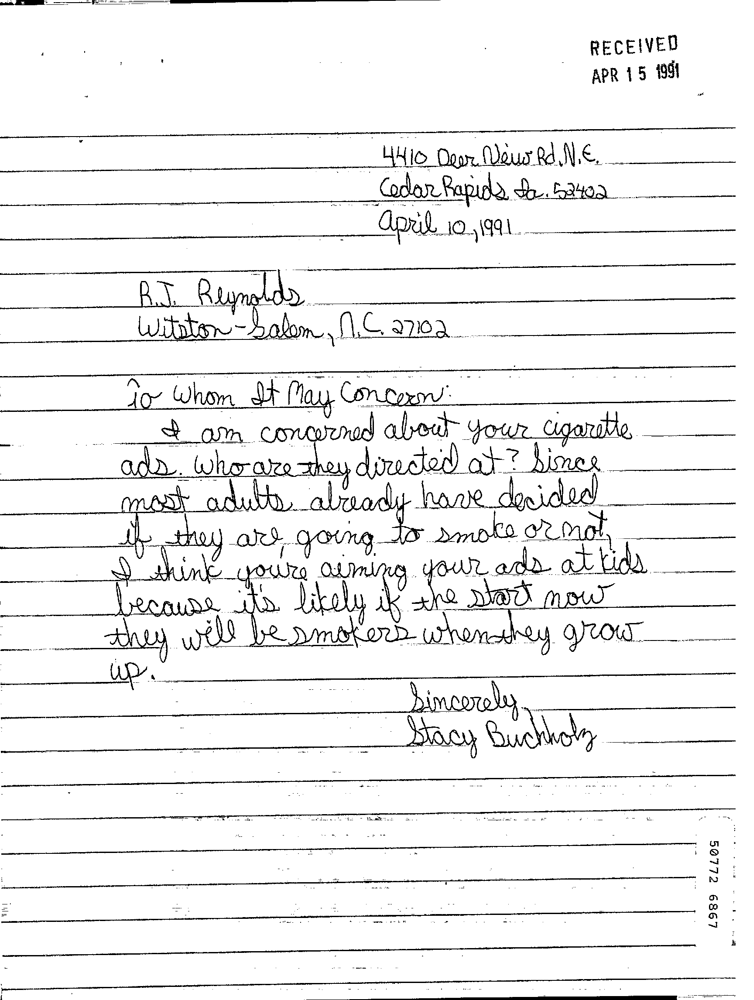 RECEIVED
APR 15 1991
4410 Deer View Rd, N.E.
Cedar Rapids Ia. 52402
April 10, 1991
R.J. Reynolds
Witston-Salem, N.C. 27102
To Whom It May Concern:
I am concerned about your cigarette
ads. Who are they directed at? Since
most adults already have decided
if they are going to smoke or not,
I think you're aiming your ads at kids
because it's likely if the start now
they will be smokers when they grow
up.
Sincerely,
Stacy Buchholz
50772 6867